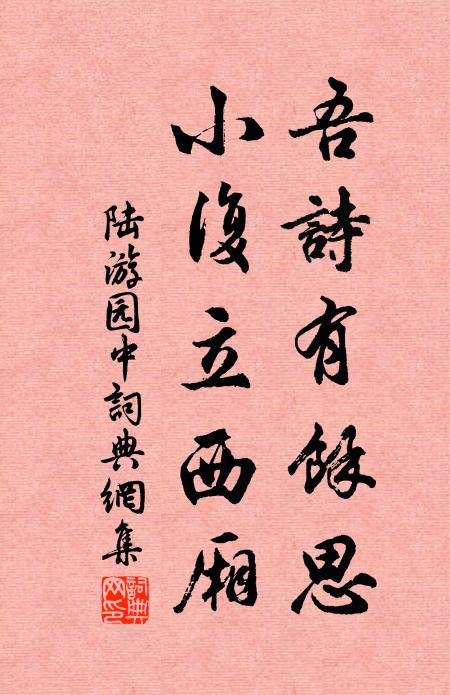 吾詩有餘思
小復立西厢
陆游园中詞典網集
詞典
网印